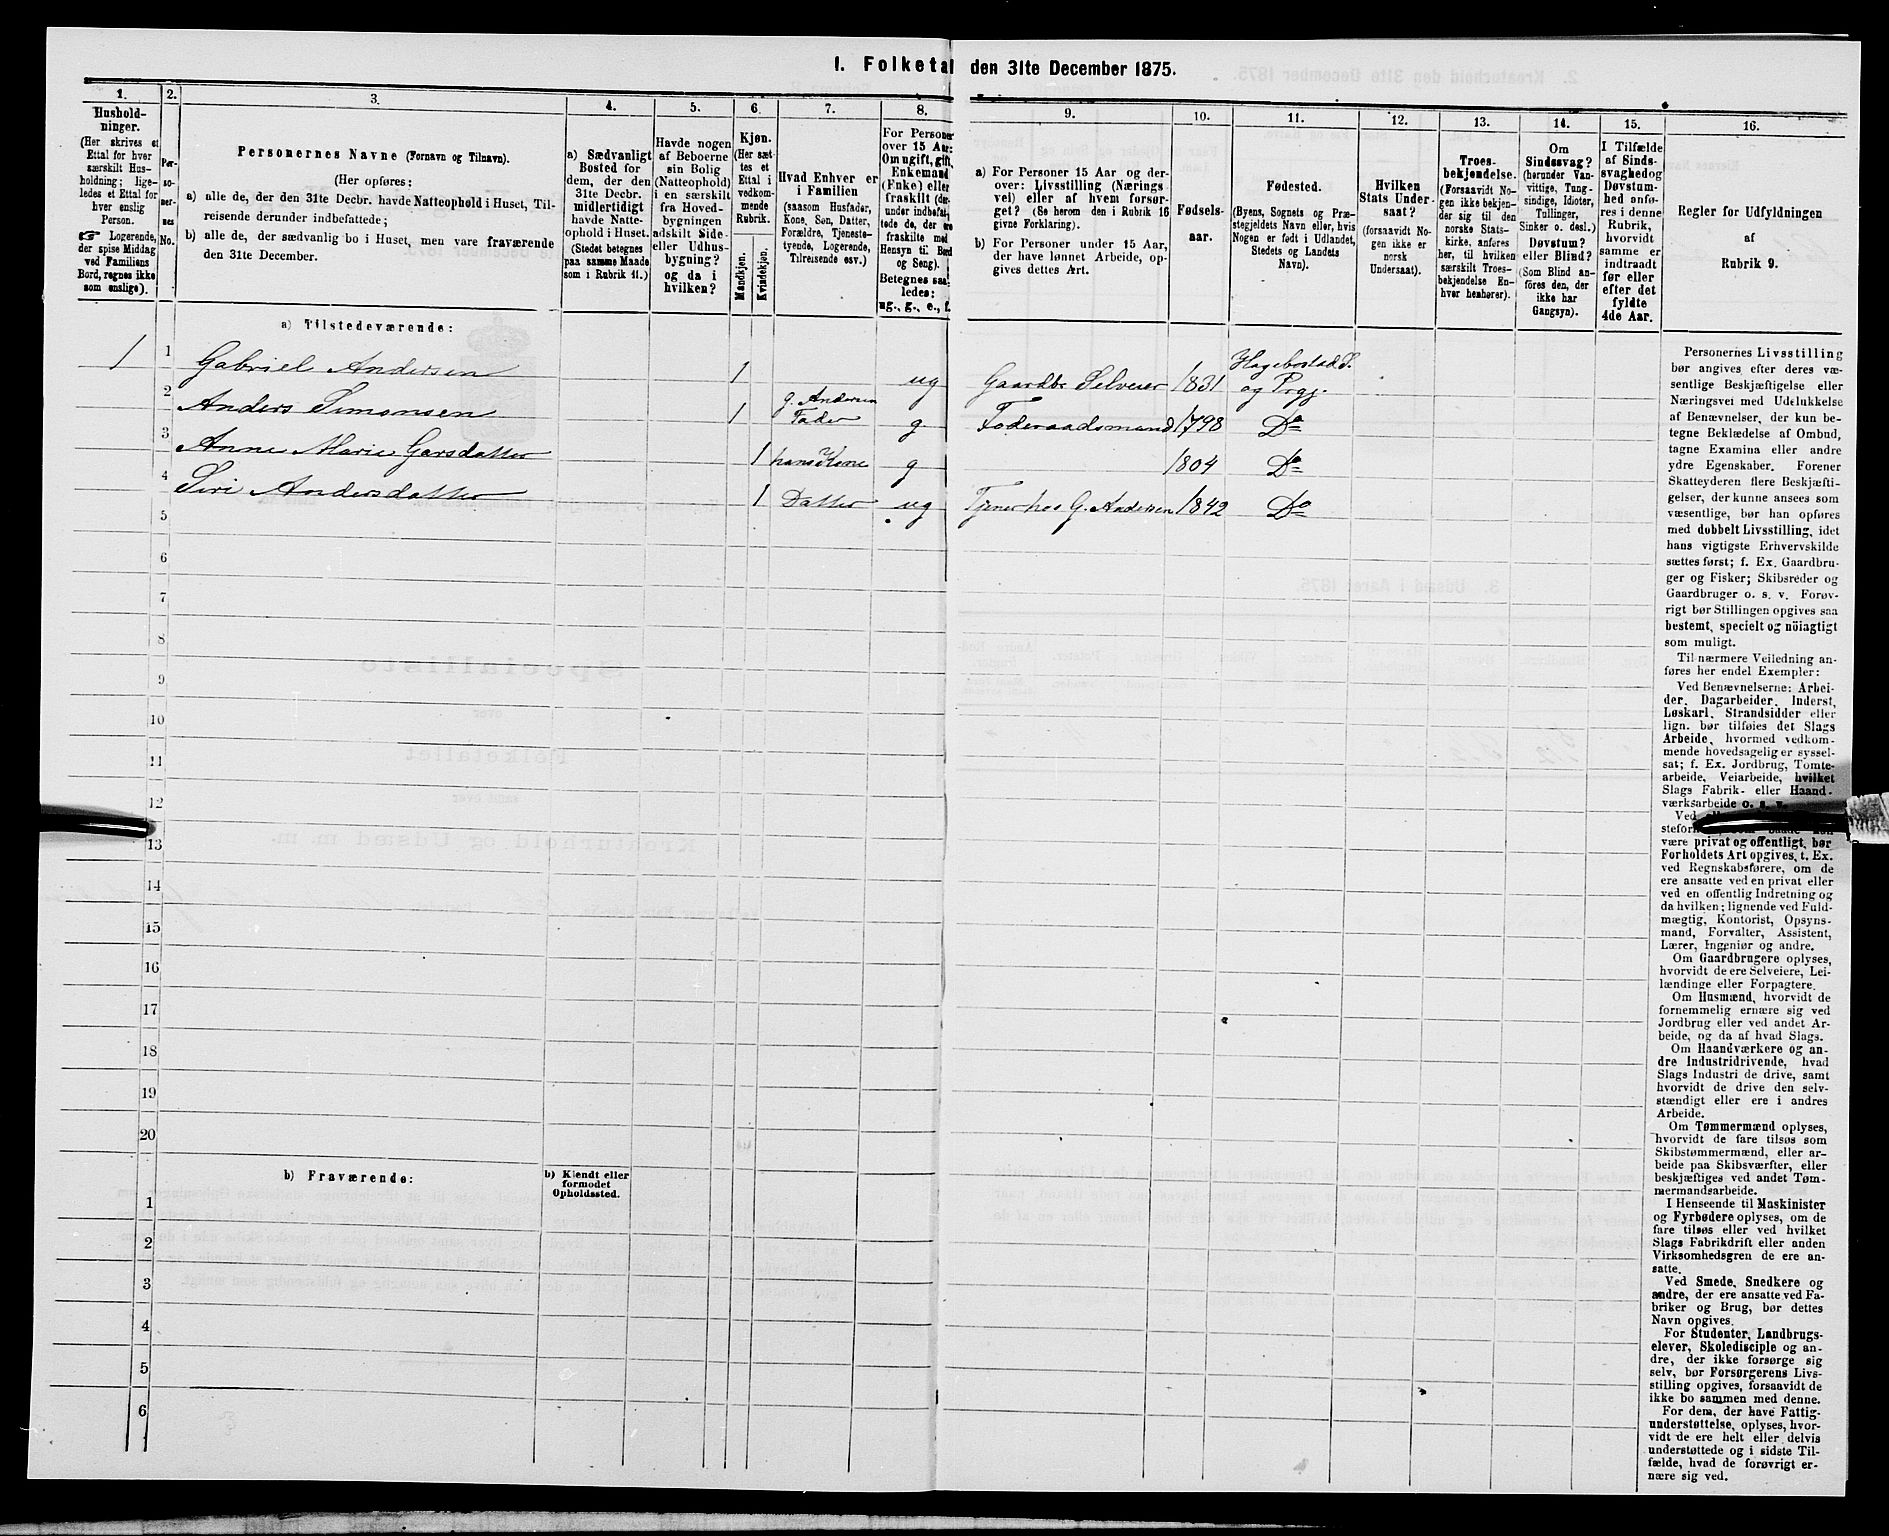 1. Folketal den 31te December 1875.
1.
Hushold-
ninger.
(Her skrives et
Ettal for hver
særskilt Hus-
holdning; lige-
ledes et Ettal for
hver enslig
Person.
☞ Logerende,
der spise Middag
ved Familiens
Bord, regnes ikke
som enslige).
2.
Per-
so-
ner-
nes
No.
3.
Personernes Navne (Fornavn og Tilnavn).
(Her opføres:
a) alle de, der den 31te Decbr. havde Natteophold i Huset, Til-
reisende derunder indbefattede;
b) alle de, der sædvanlig bo i Huset, men vare fraværende
den 31te December.
4.
a) Sædvanligt
Bosted for
dem, der den
31te Decbr.
midlertidigt
havde Natte-
ophold i Huset.
(Stedet betegnes
paa samme Maade
som i Rubrik 11.)
5.
Havde nogen
af Beboerne
sin Bolig
(Natteophold)
i en særskilt
fra Hoved-
bygningen
adskilt Side-
eller Udhus-
bygning?
og da i
hvilken?
6.
Kjøn.
(Her sæt-
tes et
Ettal i
vedkom-
mende
Rubrik.
Mandkjøn.
Kvindekjøn.
7.
Hvad Enhver er
i Familien
(saasom Husfader,
Kone, Søn, Datter,
Forældre, Tjeneste-
tyende, Logerende,
Tilreisende osv.)
8.
For Personer
over 15 Aar:
Om ugift, gift,
Enkemand
(Enke) eller
fraskilt (der-
under indbefat-
tede de, der ere
fraskilte med
Hensyn til Bord
og Seng).
Betegnes saa-
ledes:
ug., g., e., f.
9.
a) For Personer 15 Aar og der-
over: Livsstilling (Nærings
vei) eller af hvem forsør-
get? (Se herom den i Rubrik 16
givne Forklaring).
b) For Personer under 15 Aar,
der have lønnet Arbeide, op-
gives dettes Art.
10.
Fødsels-
aar.
11.
Fødested.
(Byens, Sognets og Præ-
stegjeldets Navn eller, hvis
Nogen er født i Udlandet,
Stedets og Landets
Navn).
12.
Hvilken
Stats Under-
saat?
(forsaavidt No-
gen ikke er
norsk
Undersaat).
13.
Troes-
bekjendelse.
(Forsaavidt No-
gen ikke bekjen-
der sig til den
norske Stats-
kirke, anføres
her, til hvilken
særskilt Troes-
bekjendelse En-
hver henhører).
14.
Om
Sindssvag?
(herunder Van-
vittige, Tung-
sindige, Idioter,
Tullinger,
Sinker o. desl.)
Døvstum?
eller Blind?
(Som Blind an-
føres den, der
ikke har
Gangsyn).
15.
I Tilfælde
af Sinds-
svaghed og
Døvstum-
hed anfø-
res i denne
Rubrik,
hvorvidt
samme er
indtraadt
før eller
efter det
fyldte
4de Aar.
16.
Regler for Udfyldningen
af
Rubrik 9.
a) Tilstedeværende:
1 1 Gabriel Andersen 1 ug Gaardbr Selveier 1831 Hægebostad S. og Prgj.
2 Anders Simonsen 1 G. Andersen Fader g. Føderaadsmand 1798 Do
3 Anne Marie Garsdatter 1 hans Kone g 1804 Do
4 Siri Andersdatter 1 Datter ug Tjener hos G. Andersen 1842 Do
5
6
7
8
9
10
11
12
13
14
15
16
17
18
19
20
b) Fraværende:
b) Kjendt eller
formodet
Opholdssted.
1
2
3
4
5
6
Personernes Livsstilling
bør angives efter deres væ-
sentlige Beskjæftigelse eller
Næringsvei med Udelukkelse
af Benævnelser, der kun be-
tegne Beklædelse af Ombud,
tagne Examina eller andre
ydre Egenskaber. Forener
Skatteyderen flere Beskjæfti-
gelser, der kunne ansees som
væsentlige, bør han opføres
med dobbelt Livsstilling, idet
hans vigtigste Erhvervskilde
sættes først; f. Ex. Gaardbru-
ger og Fisker; Skibsreder og
Gaardbruger o. s. v. Forøv-
rigt bør Stillingen opgives saa
bestemt, specielt og nöiagtigt
som muligt.
Til nærmere Veiledning an-
føres her endel Exempler:
Ved Benævnelserne: Arbei-
der, Dagarbeider, Inderst,
Løskarl, Strandsidder eller
lign. bør tilføies det Slags
Arbeide, hvormed vedkom-
mende hovedsagelig er syssel-
sat; f. Ex. Jordbrug, Tomte-
arbeide, Veiarbeide, hvilket
Slags Fabrik- eller Haand-
værksarbeide o. s. v.
Ved
være privat og offentligt, bør
Forholdets Art opgives, t. Ex.
ved Regnskabsførere, om de
ere ansatte ved en privat eller
ved en offentlig Indretning og
da hvilken; lignende ved Fuld-
mægtig, Kontorist, Opsyns-
mand, Forvalter, Assistent,
Lærer, Ingeniør og andre.
Om Gaardbrugere oplyses,
hvorvidt de ere Selveiere, Lei-
lændinge eller Forpagtere.
Om Husmænd, hvorvidt de
fornemmelig ernære sig ved
Jordbrug eller ved andet Ar-
beide, og da af hvad Slags.
Om Haandværkere og an-
dre Industridrivende, hvad
Slags Industri de drive, samt
hvorvidt de drive den selv-
stændigt eller ere i andres
Arbeide.
Om Tømmermænd oplyses,
hvorvidt de fare tilsøs som
Skibstømmermænd, eller ar-
beide paa Skibsværfter, eller
beskjæftiges ved andet Tøm-
mermandsarbeide.
I Henseende til Maskinister
og Fyrbødere oplyses, om de
fare tilsøs eller ved hvilket
Slags Fabrikdrift eller anden
Virksomhedsgren de ere an-
satte.
Ved Smede, Snedkere og
andre, der ere ansatte ved Fa-
briker og Brug, bør dettes
Navn opgives.
For Studenter, Landbrugs-
elever, Skoledisciple og an-
dre, der ikke forsørge sig
selv, bør Forsørgerens Livs-
stilling opgives, forsaavidt de
ikke bo sammen med denne.
For dem, der have Fattig-
understøttelse, oplyses, hvor-
vidt de ere helt eller delvis
understøttede og i sidste Til-
fælde, hvad de forøvrigt er-
nære sig ved.